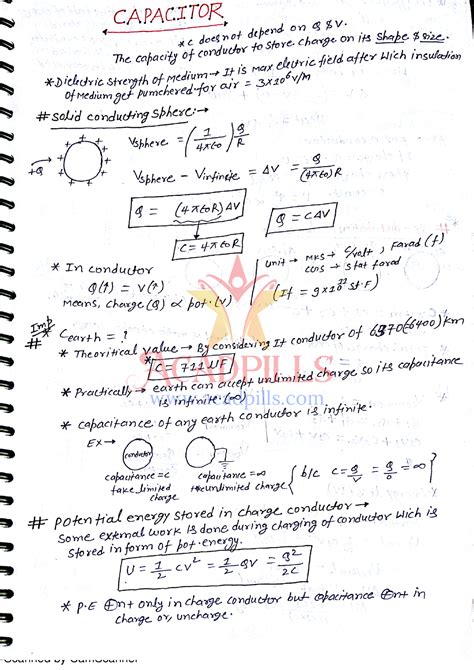 CAPACITOR
*C does not depend on Q & V.
The capacity of conductor to store charge on its shape & size.
*Dielectric strength of Medium → It is max electric field after which insulation
of Medium get punchered. for air = 3×10⁶ V/m
# Solid conducting sphere:→
+Q
Vsphere = (1/4πε0) Q/R
Vsphere - Vinfinite = ΔV = Q/(4πε0)R
Q = (4πε0R)ΔV
Q = CΔV
C = 4πε0R
* In conductor
Q(↑) = V(↑)
Means, charge(Q) ∝ pot.(V)
Unit → MKS → C/Volt, Farad (f)
CGS → stat farad
Imp
# * Cearth = ?
* Theoritical value → By considering It conductor of
C = 711 μF
* Practically → earth can accept unlimited charge so its capacitance
is infinite (∞)
ACADPILLS
www.acadpills.com
* capacitance of any earth conductor is infinite.
EX →
conductor
capacitance = C
take limited
charge
capacitance = ∞
unlimited charge
{ b/c C = Q/V = Q/0 = ∞ }
# potential energy stored in charge conductor →
Some external work is done during charging of conductor which is
stored in form of pot. energy.
U = 1/2 CV² = 1/2 QV = Q²/2C
* P.E only in charge conductor but capacitance in
charge or, uncharge.